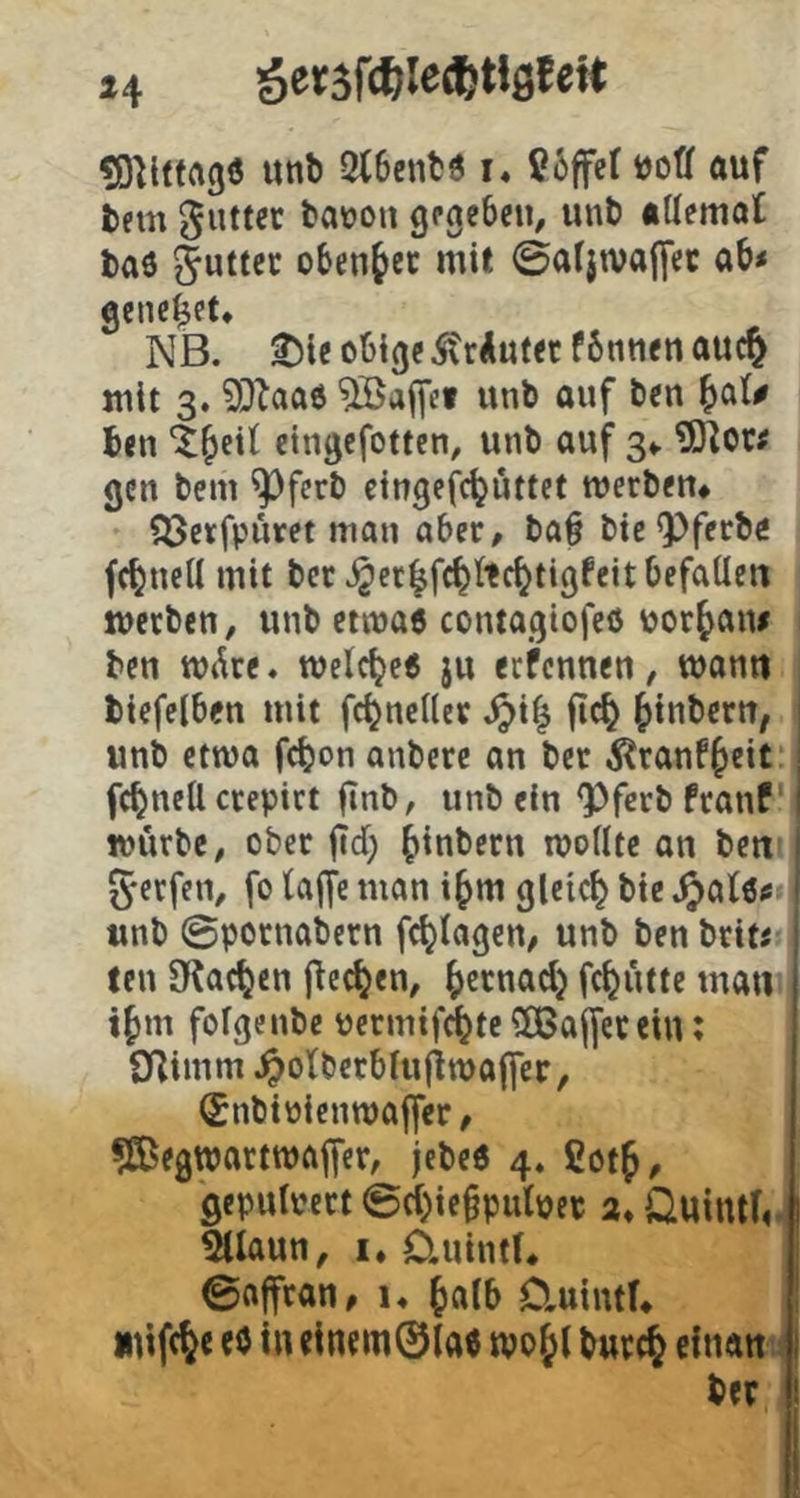 24 Herzschlechtigkeit
Mittags und Abends 1. Löffel voll auf
dem Futter davon gegeben, und allemal
das Futter obenher mit Salzwasser ab-
genetzet.
NB. Die obige Kräuter können auch
mit 3. Maas Wasser und auf den hal-
ben Theil eingesotten, und auf 3. Mor-
gen dem Pferd eingeschüttet werden.
Verspüret man aber, daß die Pferde
schnell mit der Hertzschlechtigkeit befallen
werden, und etwas contagioses vorhan-
den wäre. welches zu erkennen, wann
dieselben mit schneller Hitz sich hindern,
und etwa schon andere an der Krankheit
schnell crepirt sind, und ein Pferd krank
würde, oder sich hindern wollte an den
Fersen, so lasse man ihm gleich die Hals-
und Spornadern schlagen, und den drit-
ten Rachen stechen, hernach schütte man
ihm folgende vermischte Wasser ein:
Nimm Holderblustwasser,
Endivienwasser,
Wegwartwasser, jedes 4. Loth,
gepulvert Schießpulver 2. Quintl.
Alaun, 1. Quintl.
Saffran, 1. halb Quintl.
mische es in einem Glas wohl durch einan
der